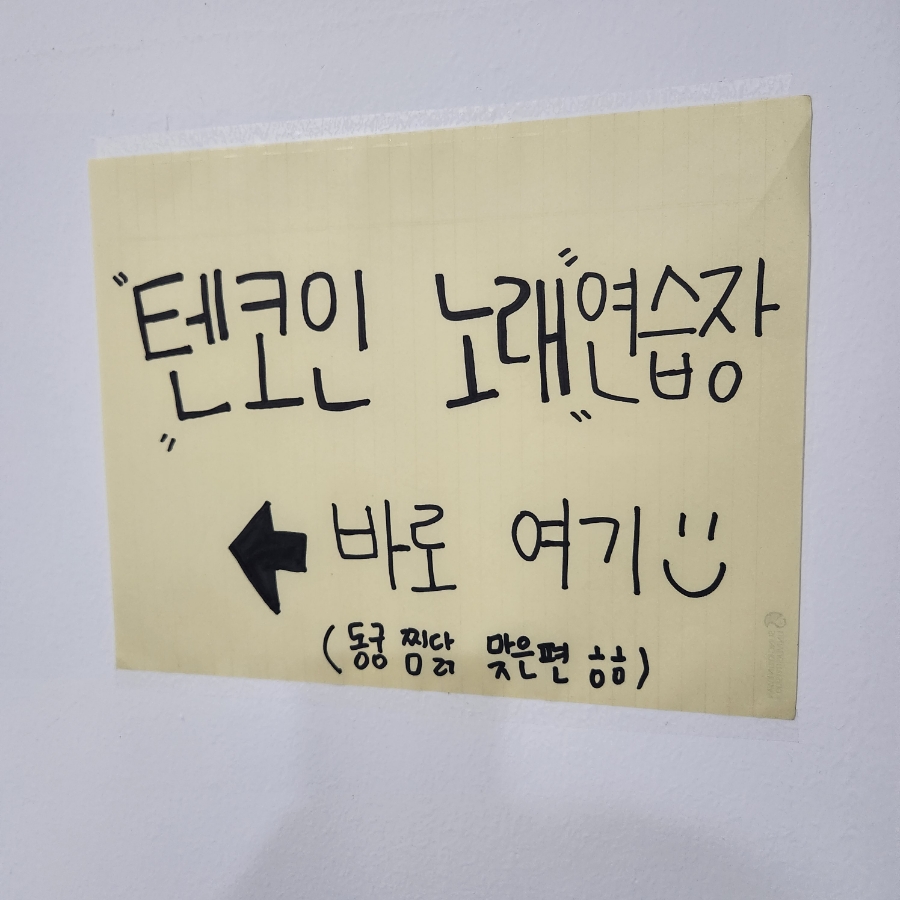 "텐코인 노래"연습장
바로 여기
(동궁 찜닭 맞은편 흠흠)